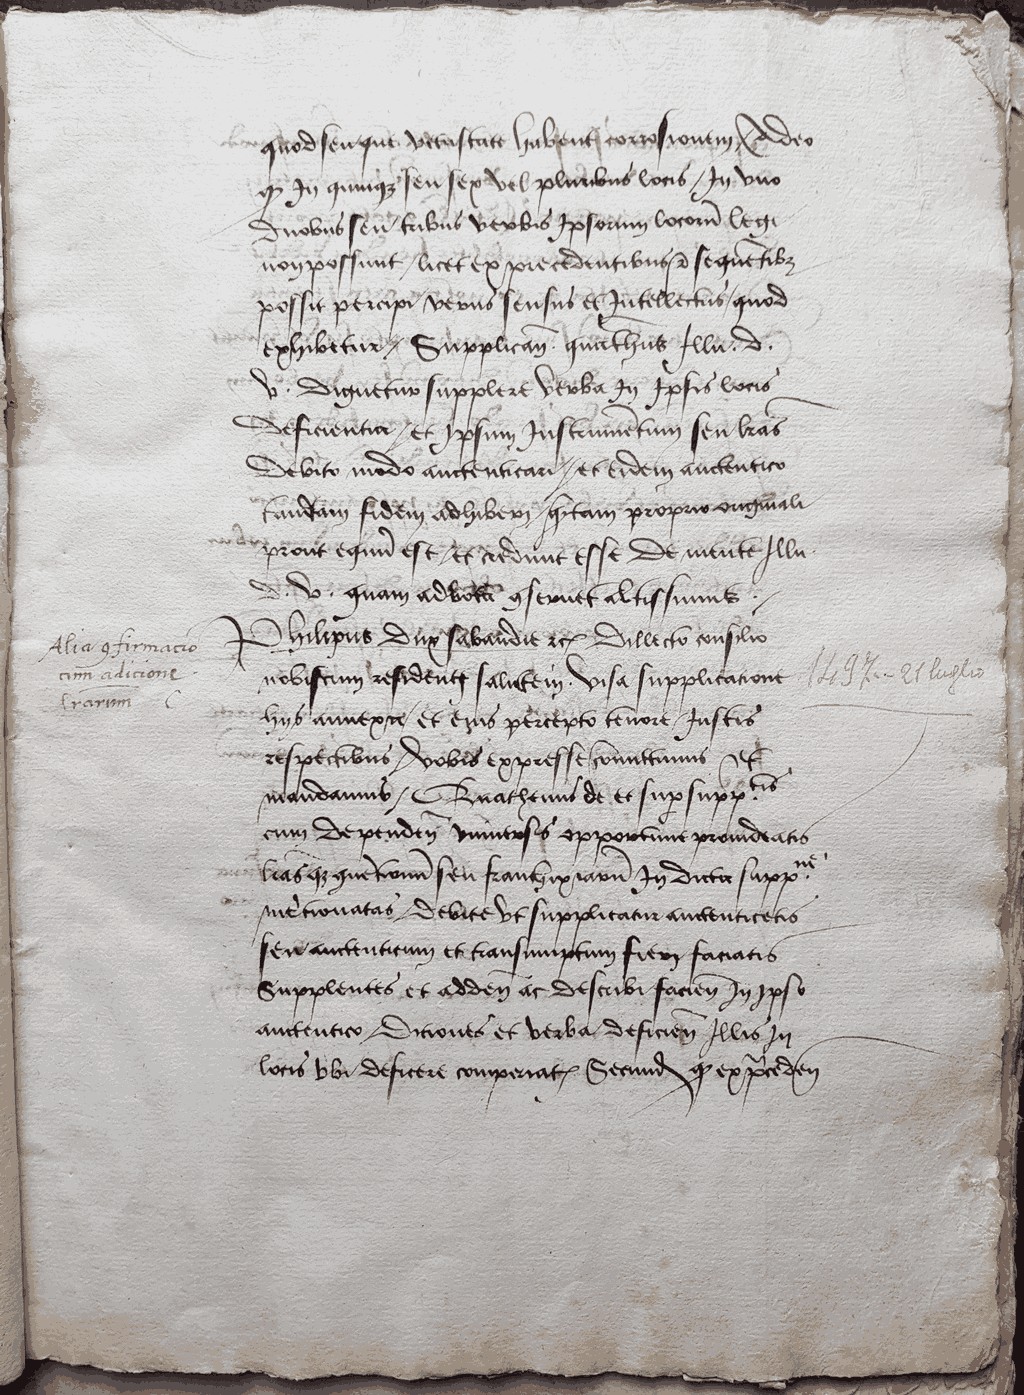 quodsenque vetustate habent corrosionem / Adeo
q In quinque seu sex vel pluribus locis / In vno
duobus seu tribus verbis Ipsorum locorū legi
non possunt / licet ex precedentibus et sequētibꝫ
possit percipi verus sensus et Intellectus / quod
exhibetur / Supplicaň. quathus Illu. d.
v. dignetur supplere verba In Ipsis locis
deficientia / et Ipsum Instrumētum seu lras
debito modo auctenticari / et eidem auctentico
tandam fidem adhiberi / qtam proprio originali
prout equū est / et credunt esse de mente Illu.
d. v. quam ad vota 9seruet altissimus .
Philipus dux sabaudie etc. dillecto consilio
nobiscum residenti salutem. visa supplicatione
hijs annexa / et eius percepto tenore / Iustis
respectibus / vobis expresse comittimus et
mandamus / Quathenus de et super supp.tis
cum dependeň vniuersis opportune prouideatis
lras seu franchixiarū In dicta supp.ne
mētionatas / debite vt supplicatur auctenticetis
seu auctenticum et transumptum fieri faciatis
Supplentes et addeň ac describi facieň In Ipso
auctentico / Dictiones et verba deficieň Illis In
locis vbi deficere comperiat Secund q ex pceden
Alia 9firmacio
cum adicione
lrarum
1497 - 21 luglio